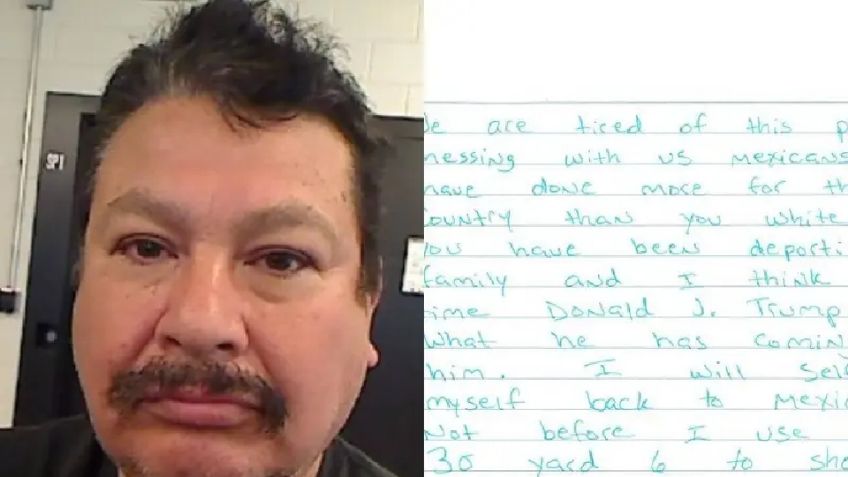 SPI
are tired of this p
messing with us mexicans
have done more for th
country than you white
you have been deporti
family and I think
time Donald J. Trump
What he has comin
him. I will Sel
myself back to Mexic
Not before I use
30 yard 6 to sho